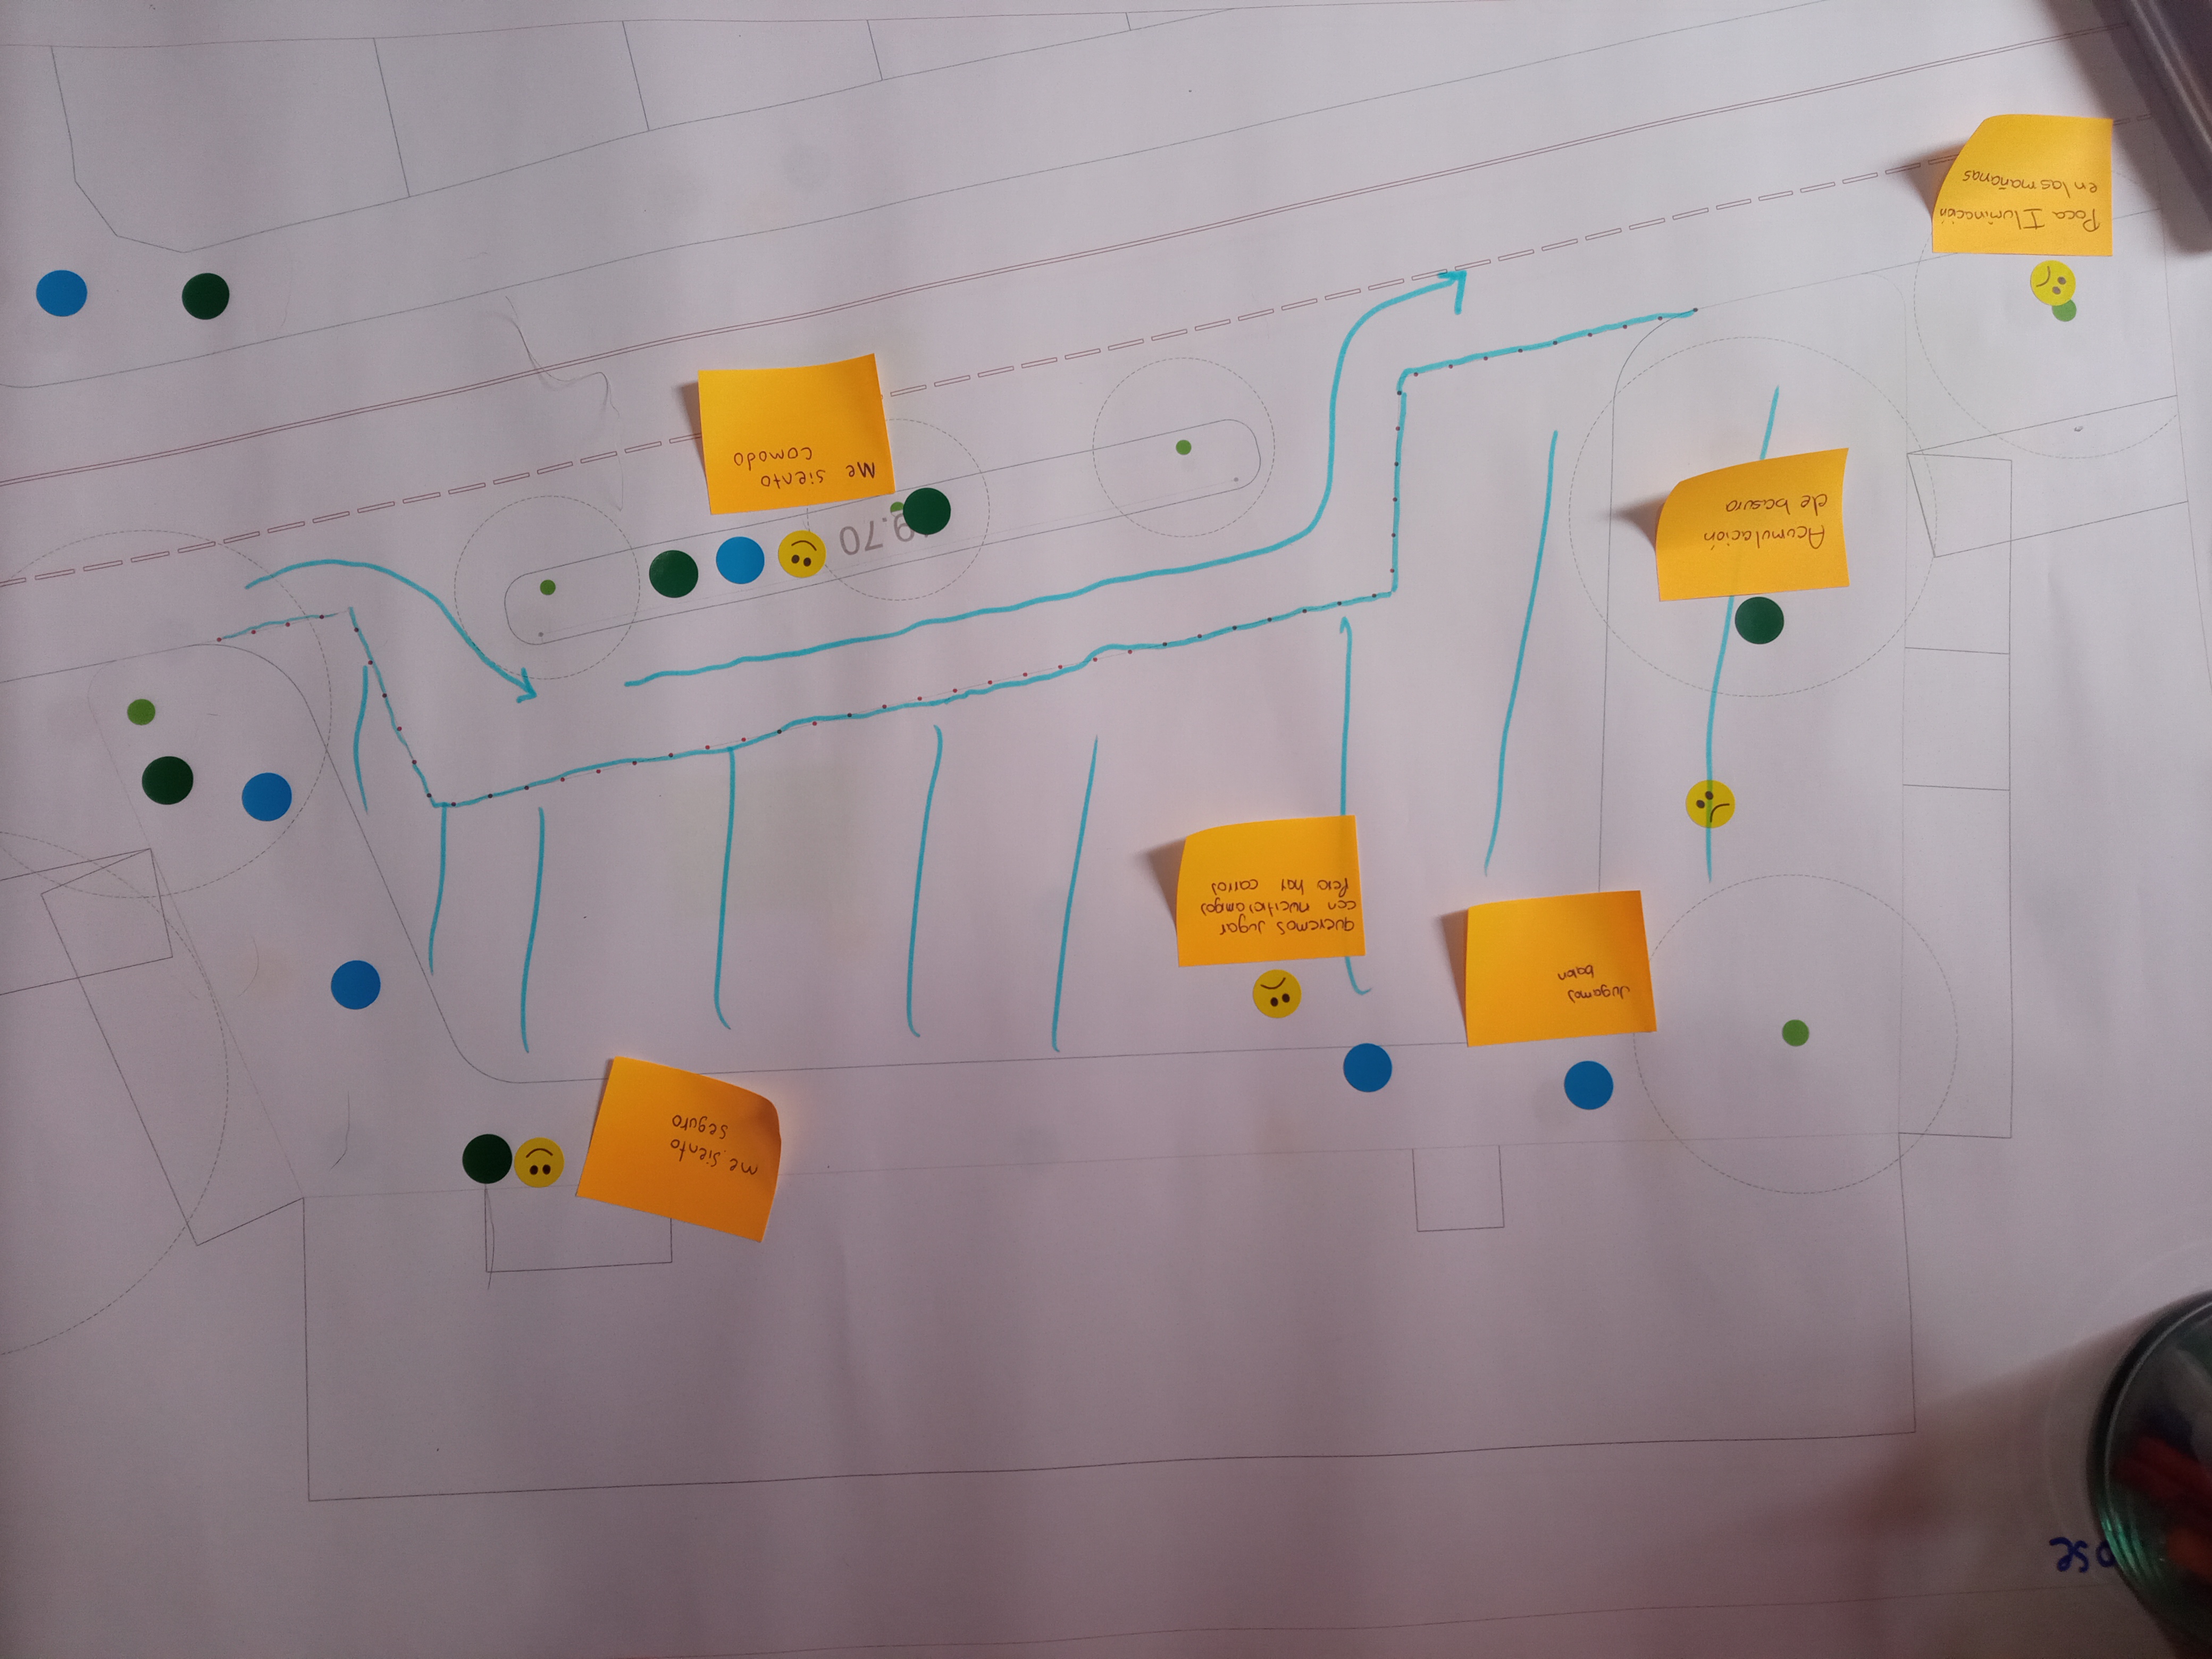 ose
me siento
seguro
Jugamos
balon
queremos jugar
con nuestros amigos
Pero hay carros
Acumulación
de basura
9.70
Me siento
comodo
Poca Iluminación
en las mañanas